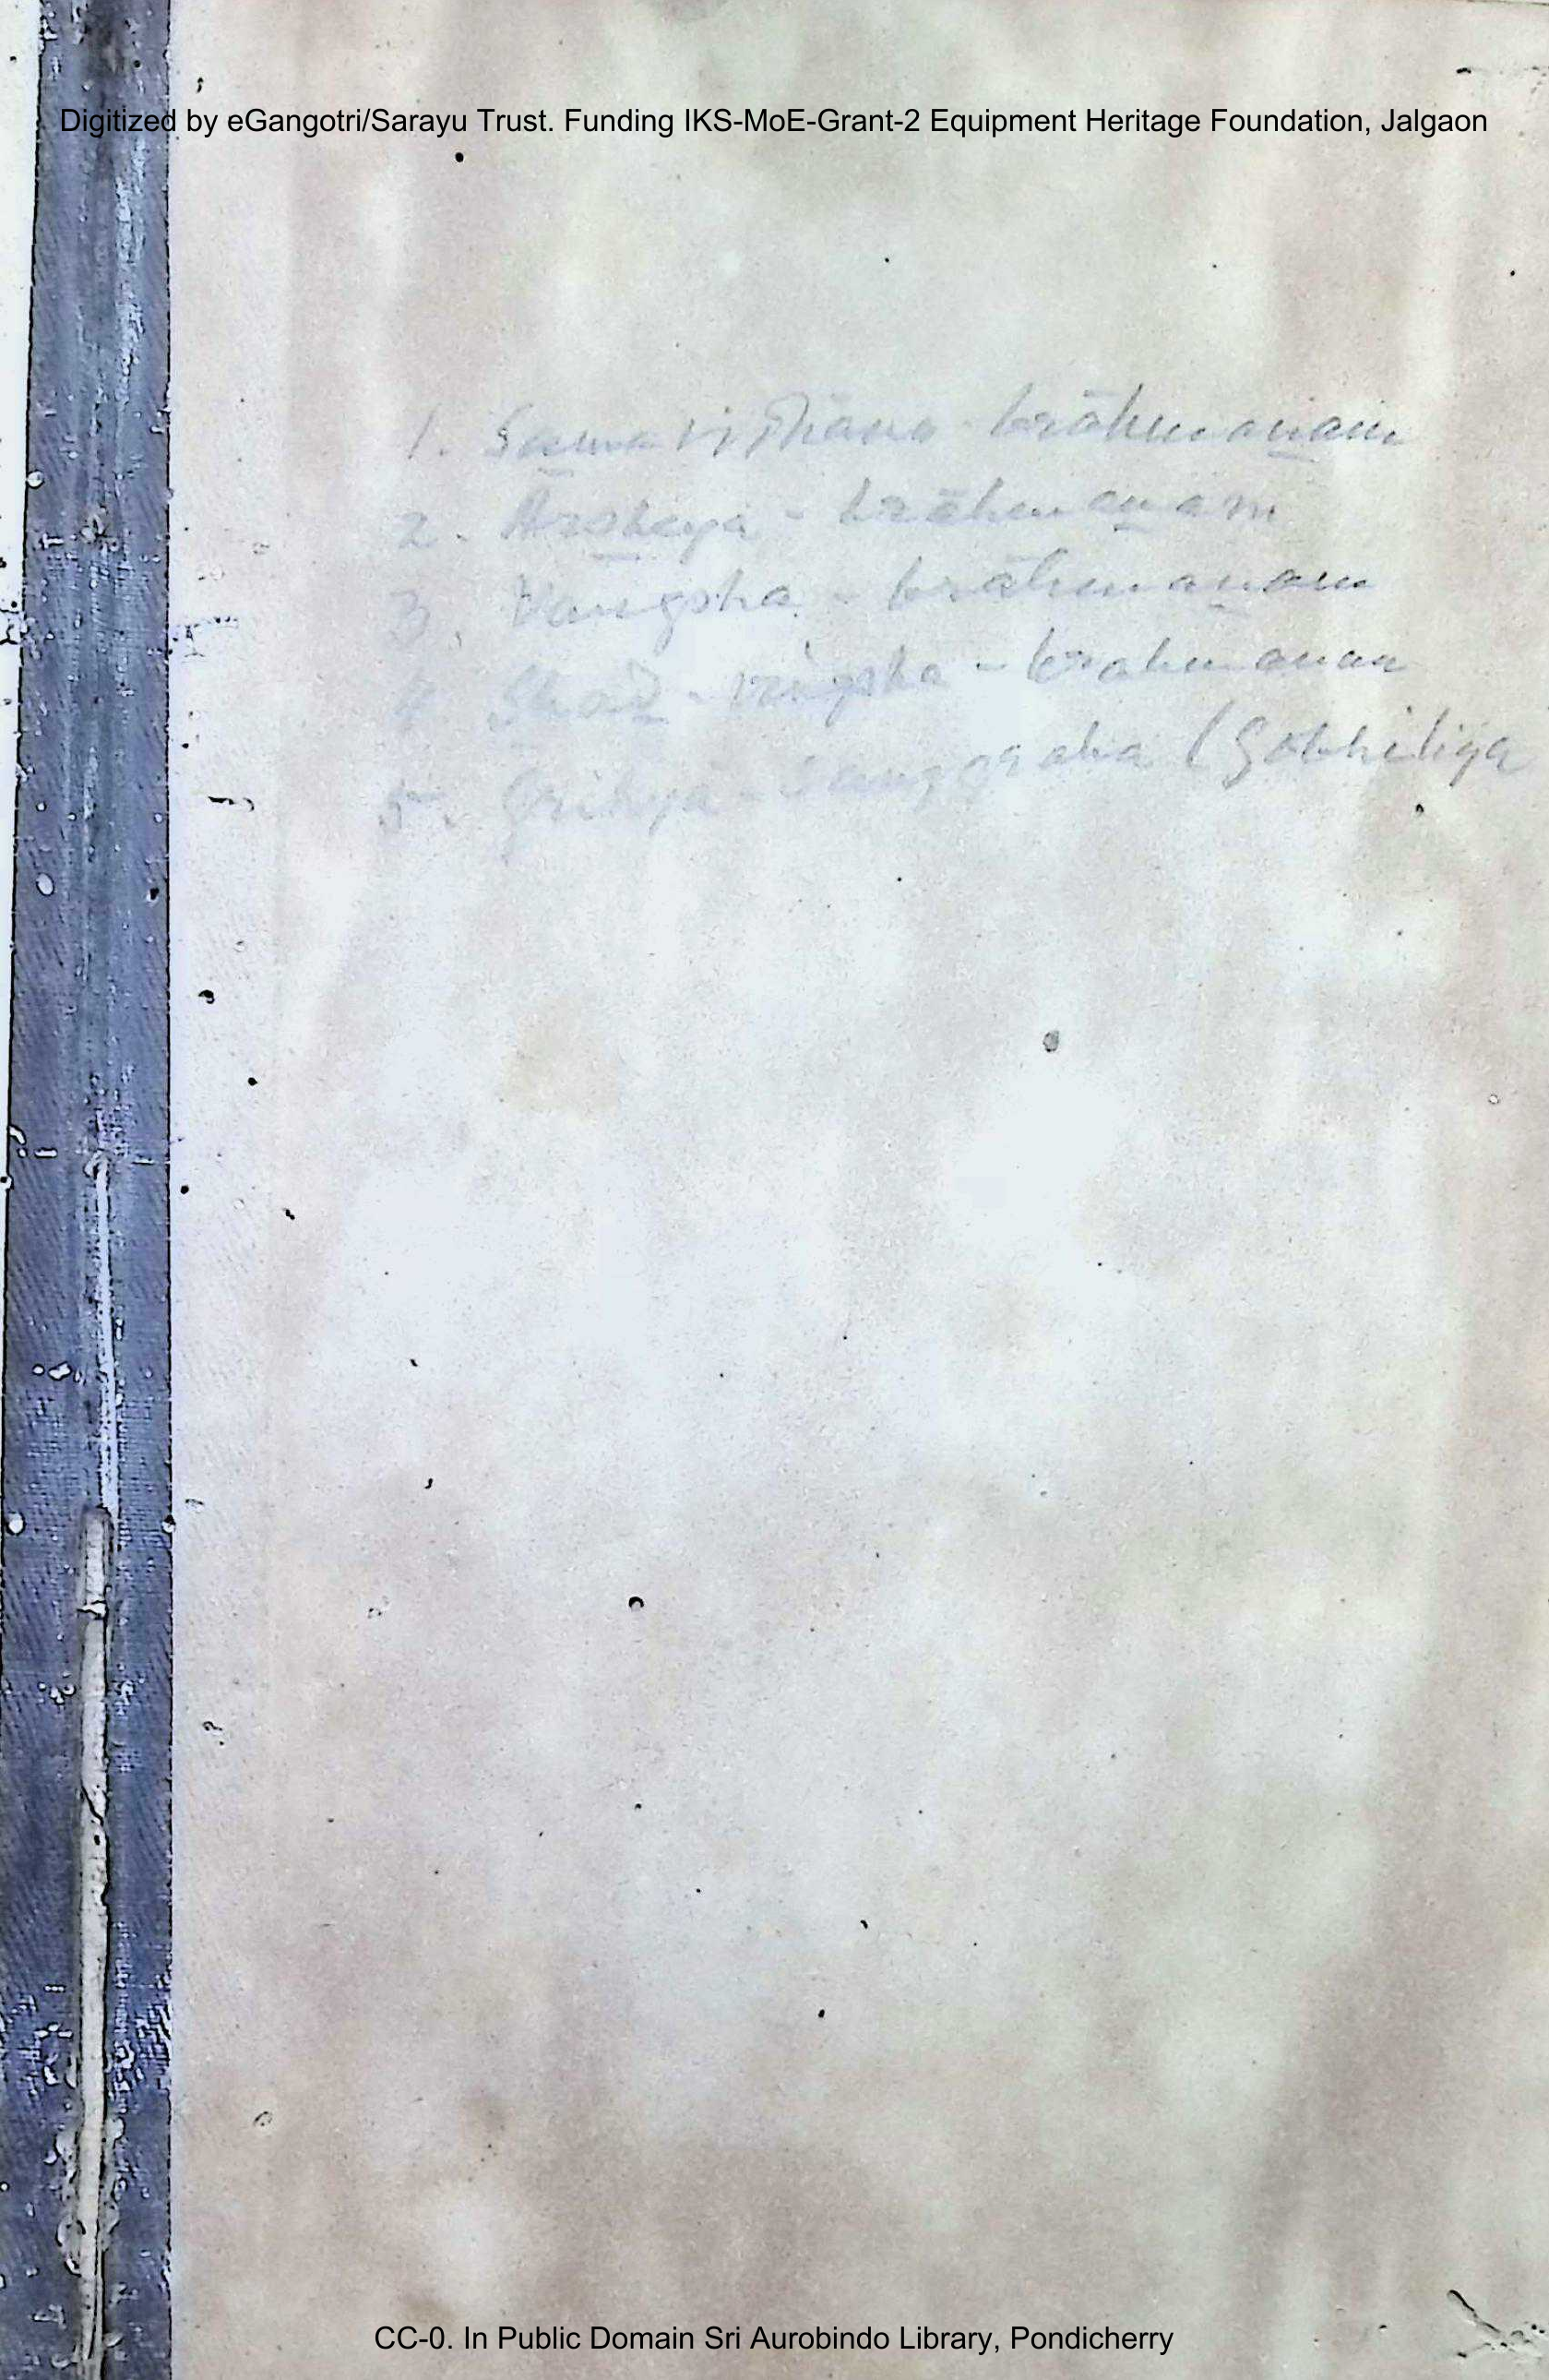 Digitized by eGangotri/Sarayu Trust. Funding IKS-MoE-Grant-2 Equipment Heritage Foundation, Jalgaon
1. Samavidhana - brāhmaṇam
2. Arsheya - brāhmaṇam
3. Vangsha - brāhmaṇam
4. Shaḍ - vingsha - brahmanam
5. Grihya - Sanggraha (Gobhiliya
CC-0. In Public Domain Sri Aurobindo Library, Pondicherry